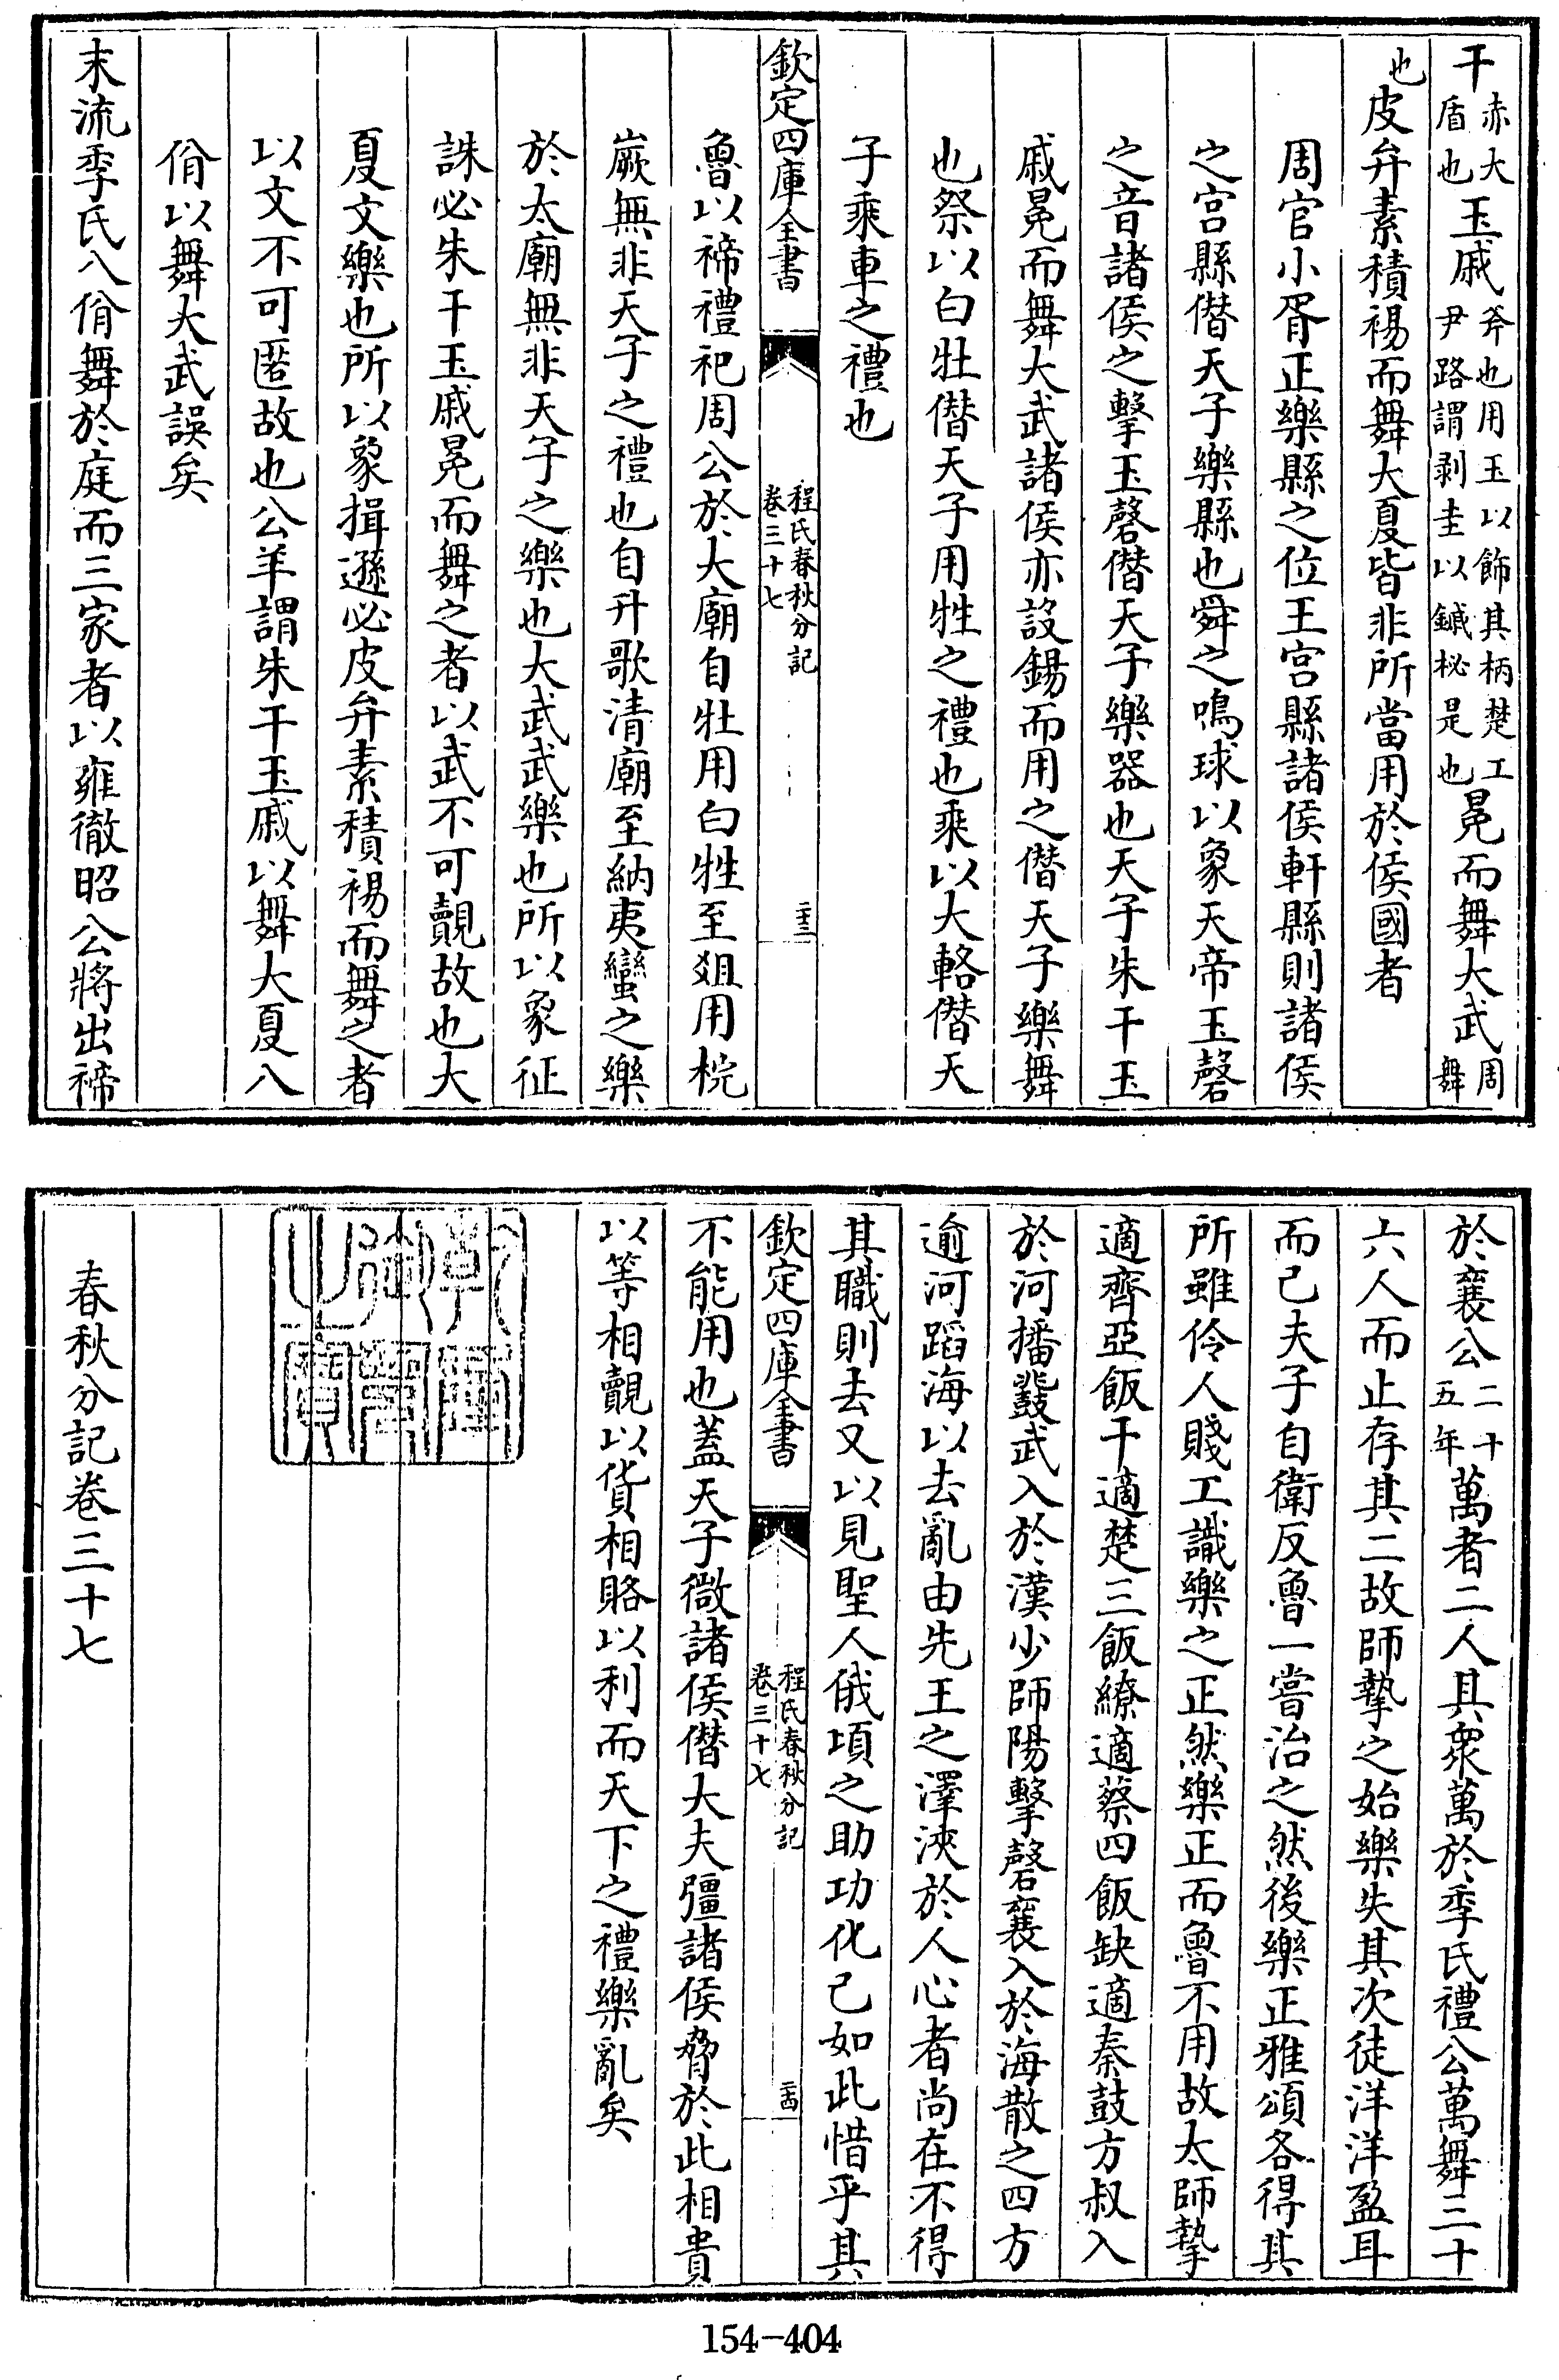 干赤大盾也玉戚斧也用玉以飾其柄楚工尹路謂剥圭以鏚柲是也冕而舞大武周舞
也皮弁素積裼而舞大夏皆非所當用於侯國者
周官小胥正樂縣之位王宫縣諸侯軒縣則諸侯
之宫縣僣天子樂縣也舜之鳴球以象天帝玉磬
之音諸侯之擊玉磬僣天子樂器也天子朱干玉
戚冕而舞大武諸侯亦設錫而用之僣天子樂舞
也祭以白牡僣天子用牲之禮也乘以大輅僣天
子乘車之禮也
欽定四庫全書
程氏春秋分記
卷三十七
二十三
魯以禘禮祀周公於大廟自牡用白牲至爼用梡
嶡無非天子之禮也自升歌清廟至納夷蠻之樂
於太廟無非天子之樂也大武武樂也所以象征
誅必朱干玉戚冕而舞之者以武不可覿故也大
夏文樂也所以象揖遜必皮弁素積裼而舞之者
以文不可匿故也公羊謂朱干玉戚以舞大夏八
佾以舞大武誤矣
末流季氏八佾舞於庭而三家者以雍徹昭公將出禘
於襄公二十五年萬者二人其衆萬於季氏禮公萬舞三十
六人而止存其二故師摯之始樂失其次徒洋洋盈耳
而己夫子自衛反魯一嘗治之然後樂正雅頌各得其
所雖伶人賤工識樂之正然樂正而魯不用故太師摯
適齊亞飯干適楚三飯繚適蔡四飯缺適秦鼓方叔入
於河播鼗武入於漢少師陽擊磬襄入於海散之四方
逾河蹈海以去亂由先王之澤浹於人心者尚在不得
其職則去又以見聖人俄頃之助功化己如此惜乎其
欽定四庫全書
程氏春秋分記
卷三十七
二十四
不能用也蓋天子微諸侯僣大夫彊諸侯脅於此相貴
以等相覿以貨相賂以利而天下之禮樂亂矣
春秋分記卷三十七
154-404